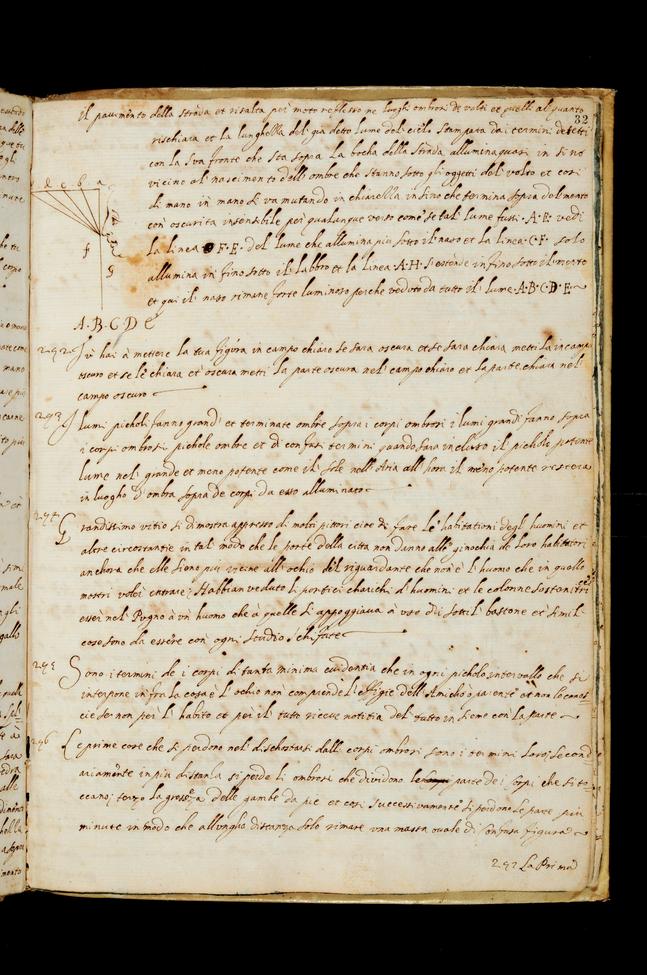 32
il pavimento della strada et risalta per moto reflesso ne luoghi ombrosi de volti et quelli al quanto
rischiara et la lunghella del gia detto lume del cielo stampata da i termini de tetti
con la sua fronte che sta sopra la bocha della strada allumina quasi in sino
vicino al nascimento dell'ombre che stanno sotto gli oggetti del volto et cosi
di mano in mano si va mutando in chiarella insino che termina sopra del mento
con oscurita insensibile per qualunque verso come se tal lume fussi A.E. vedi
la linea F.E. del lume che allumina piu sotto il naso et la linea C.F. solo
allumina in fino sotto il labbro et la linea A.H. s'estende infino sotto il mento
et qui il naso rimane forte luminoso perche veduto da tutto il lume A.B.C.D.E
d c b a
f
g
A.B.C.D E
Tu hai à mettere la tua figura in campo chiaro se sara oscura et se sara chiara metti la in campo
oscuro et se l'è chiara et oscura metti la parte oscura nel campo chiaro et la parte chiara nel
campo oscuro
293 I lumi picholi fanno grandi et terminate ombre sopra i corpi ombrosi i lumi grandi fanno sopra
i corpi ombrosi pichole ombre et di confusi termini quando sara incluso il pichole potente
lume nel grande et meno potente come il sole nell'Aria all'hora il meno potente restera
in luogho d'ombra sopra de corpi da esso alluminato
294 Grandissimo vitio si dimostra appresso di molti pittori cioe di fare le habitationi degl huomini et
altre circostantie in tal modo che le porte della citta non danno alle ginochia de loro habitatori
anchora che elle sieno piu vicine all'ochio del riguardante che non è l'huomo che in quelle
mostri voler entrare; Habbian veduto li portici charichi d'huomini et le colonne sostenitrici
esser nel Pugno à un huomo che à quelle si appoggiava à uso di sottil bastone et simil
cose sono da essere con ogni studio schifate
295 Sono i termini de i corpi di tanta minima evidentia che in ogni picholo intervallo che si
interpone infra la cosa e l'ochio non comprende l'effigie dell'Amicho ò parente et non lo conos=
cie se non per l'habito et per il tutto riceve notitia del tutto insieme con la parte
296 Le prime cose che si perdono nel discostarsi dalli corpi ombrosi sono i termini loro, second
ariamente in piu distanza si perde li ombrosi che dividono le parte de i corpi che si to
ccano, terzo la grossezza delle gambe da pie et cosi successivamente si perdono le parte piu
minute in modo che a lungha distanza solo rimane una massa ovale di confusa figura
297 La Prima